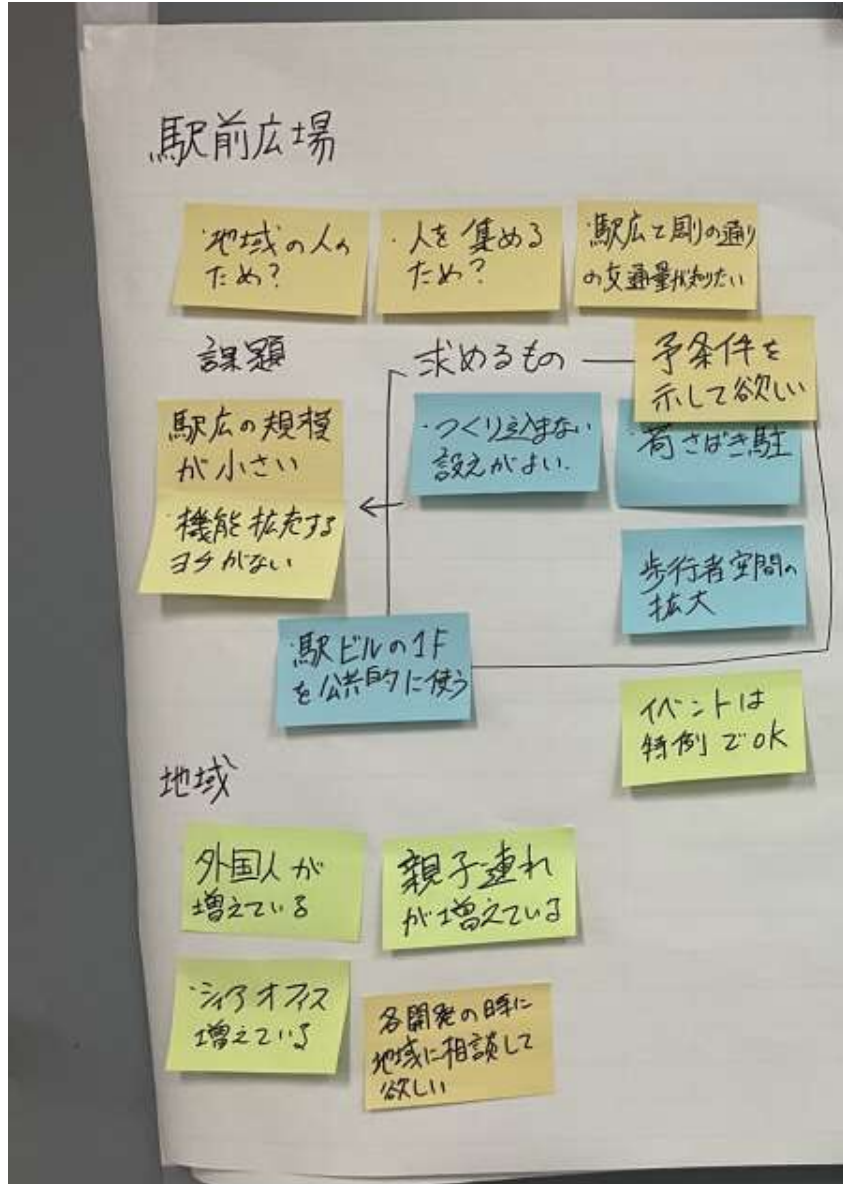 駅前広場
・地域の人の
ため?
・人を集める
ため?
・駅広て周の通り
の交通量が知りたい
課題
求めるもの
予条件を
示して欲しい
駅広の規模
が小さい
・機能拡充する
ヨチがない
・つくり込まない
設えがよい.
・荷さばき駐
歩行者空間の
拡大
・駅ビルの1F
を公共的に使う
イベントは
特例でOK
地域
外国人が
増えている
親子連れ
が増えている
・シェアオフィス
増えている
各開発の時に
地域に相談して
欲しい